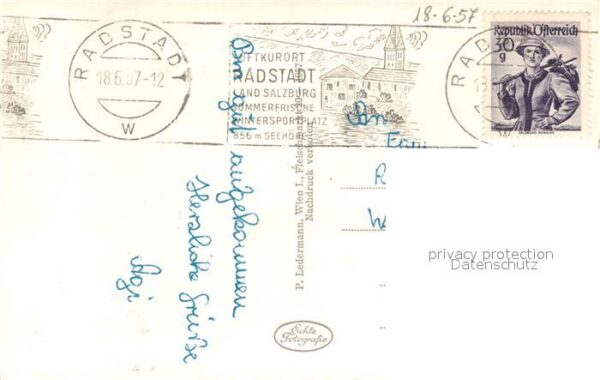 18.6.57
RADSTADT
18.6.57-12
W
LUFTKURORT
RADSTADT
LAND SALZBURG
SOMMERFRISCHE
WINTERSPORTPLATZ
856 m SEEHÖHE
RADS
Republik Österreich
30
g
SALZBURG, PONGAU
Bin gut angekommen
Herzliche Grüße
P. Ledermann, Wien I., Fleischmarkt
Nachdruck verboten
An
R
W
privacy protection
Datenschutz
Echte
Fotografie